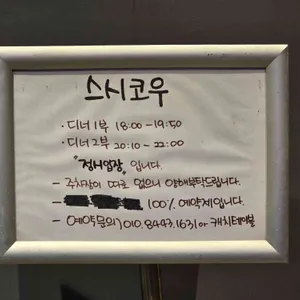 스시코우
· 디너 1부 18:00 - 19:50
· 디너 2부 20:10 - 22:00
"정시입장" 입니다.
- 주차장이 따로 없으니 양해부탁드립니다.
- 100% 예약제입니다.
- (예약문의) 010.8493.1631 or 캐치테이블